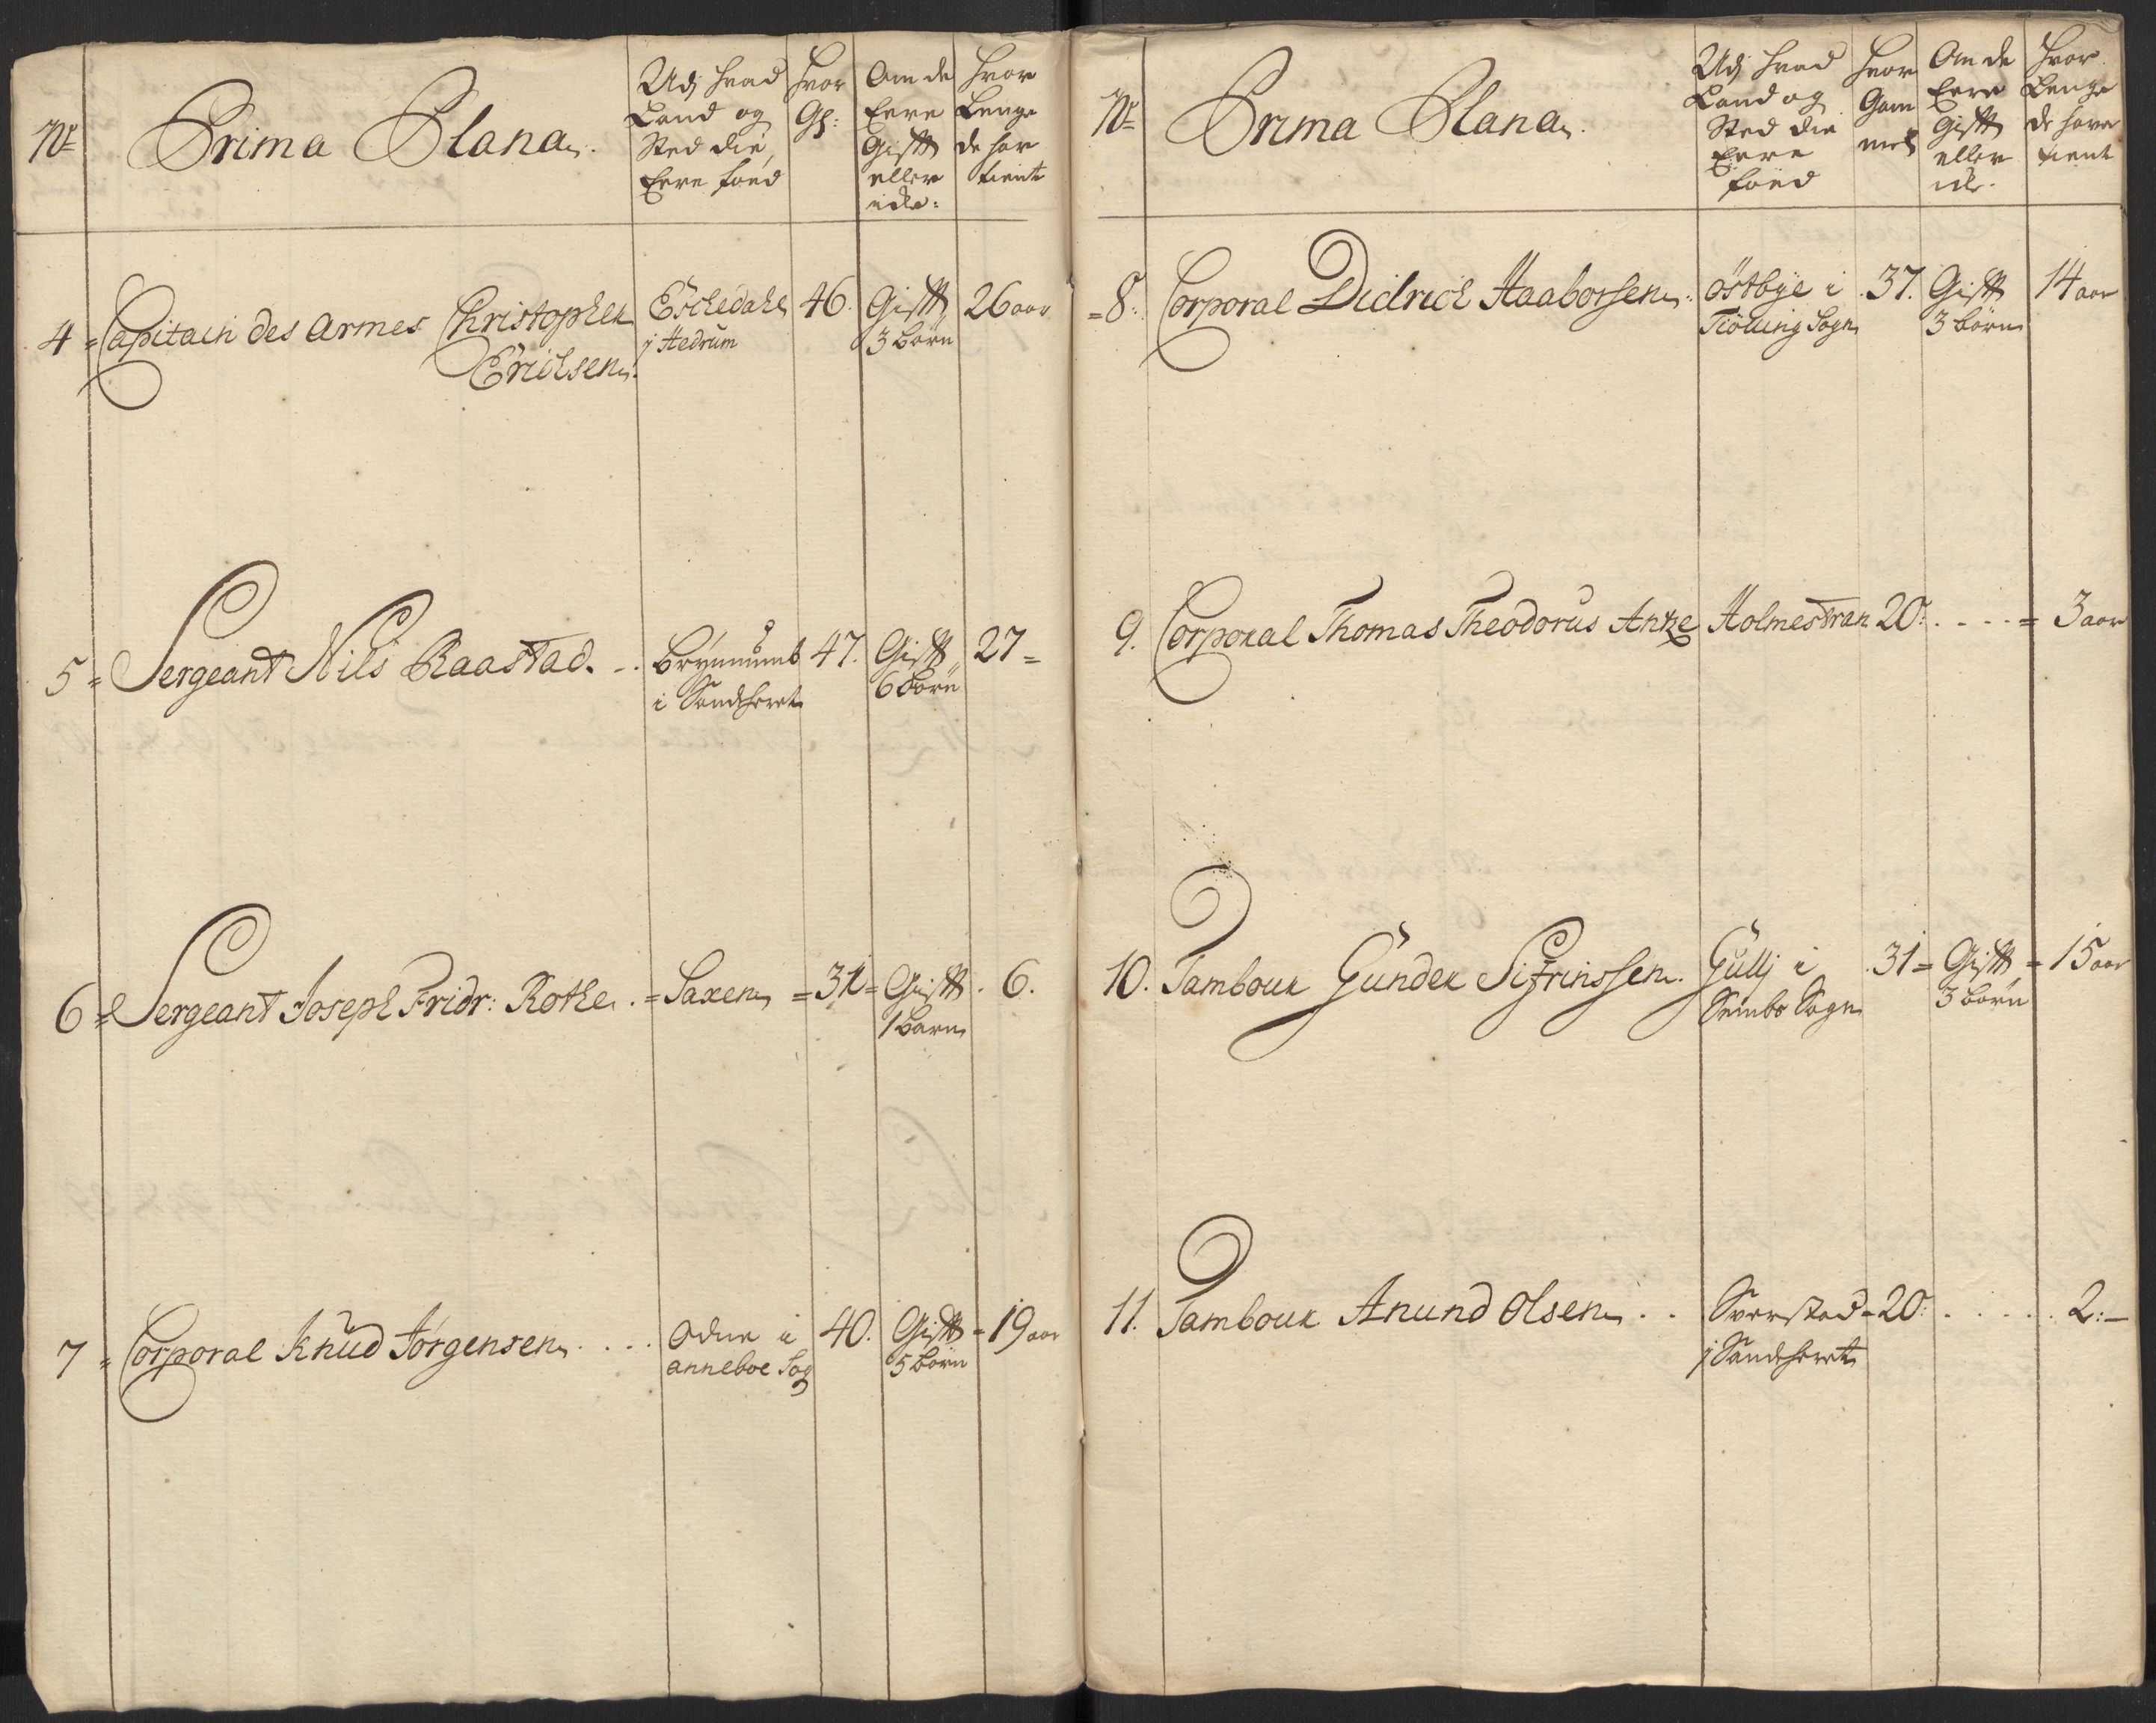 No
Prima Plana.
Udj hvad Land og Sted die Ere føed
hvor Gl:
Om de Ere Gift eller icke:
hvor Lenge de har tient
4 = Capitain des Armes Christopher Erichsen. Eschedahl j Hedrum 46. Gift 3 børn 26 aar
5 = Sergeant Nils Raastad. .. i Sandeheret 47. Gift 6 børn 27 =
6 = Sergeant Joseph Fridr: Rothe. = Saxen = 31 = Gift 1 barn . 6.
7 = Corporal Knud Jörgensen. . . . Odne i anneboe Sog 40. Gift 5 børn = 19 aar
No
Prima Plana.
Udj hvad Land og Sted die Eere föed
hvor Gammel
Om de Eere Gift eller ick.
hvor Lenge de have tient
= 8. Corporal Didrich Haaborsen. Östbÿe i Tiölling Sogn 37. Gift 3 börn 14 aar
9. Corporal Thomas Theodorus Anke Holmestran 20: . . . . = 3 aar
10. Tambour Gunder Sifrinssen. Gullj i Sembs Sogn 31 = Gift 3 börn = 15 aar
11. Tambour Anund Olsen. . . Sverstad j Sandeheret = 20: . . . . . 2: —